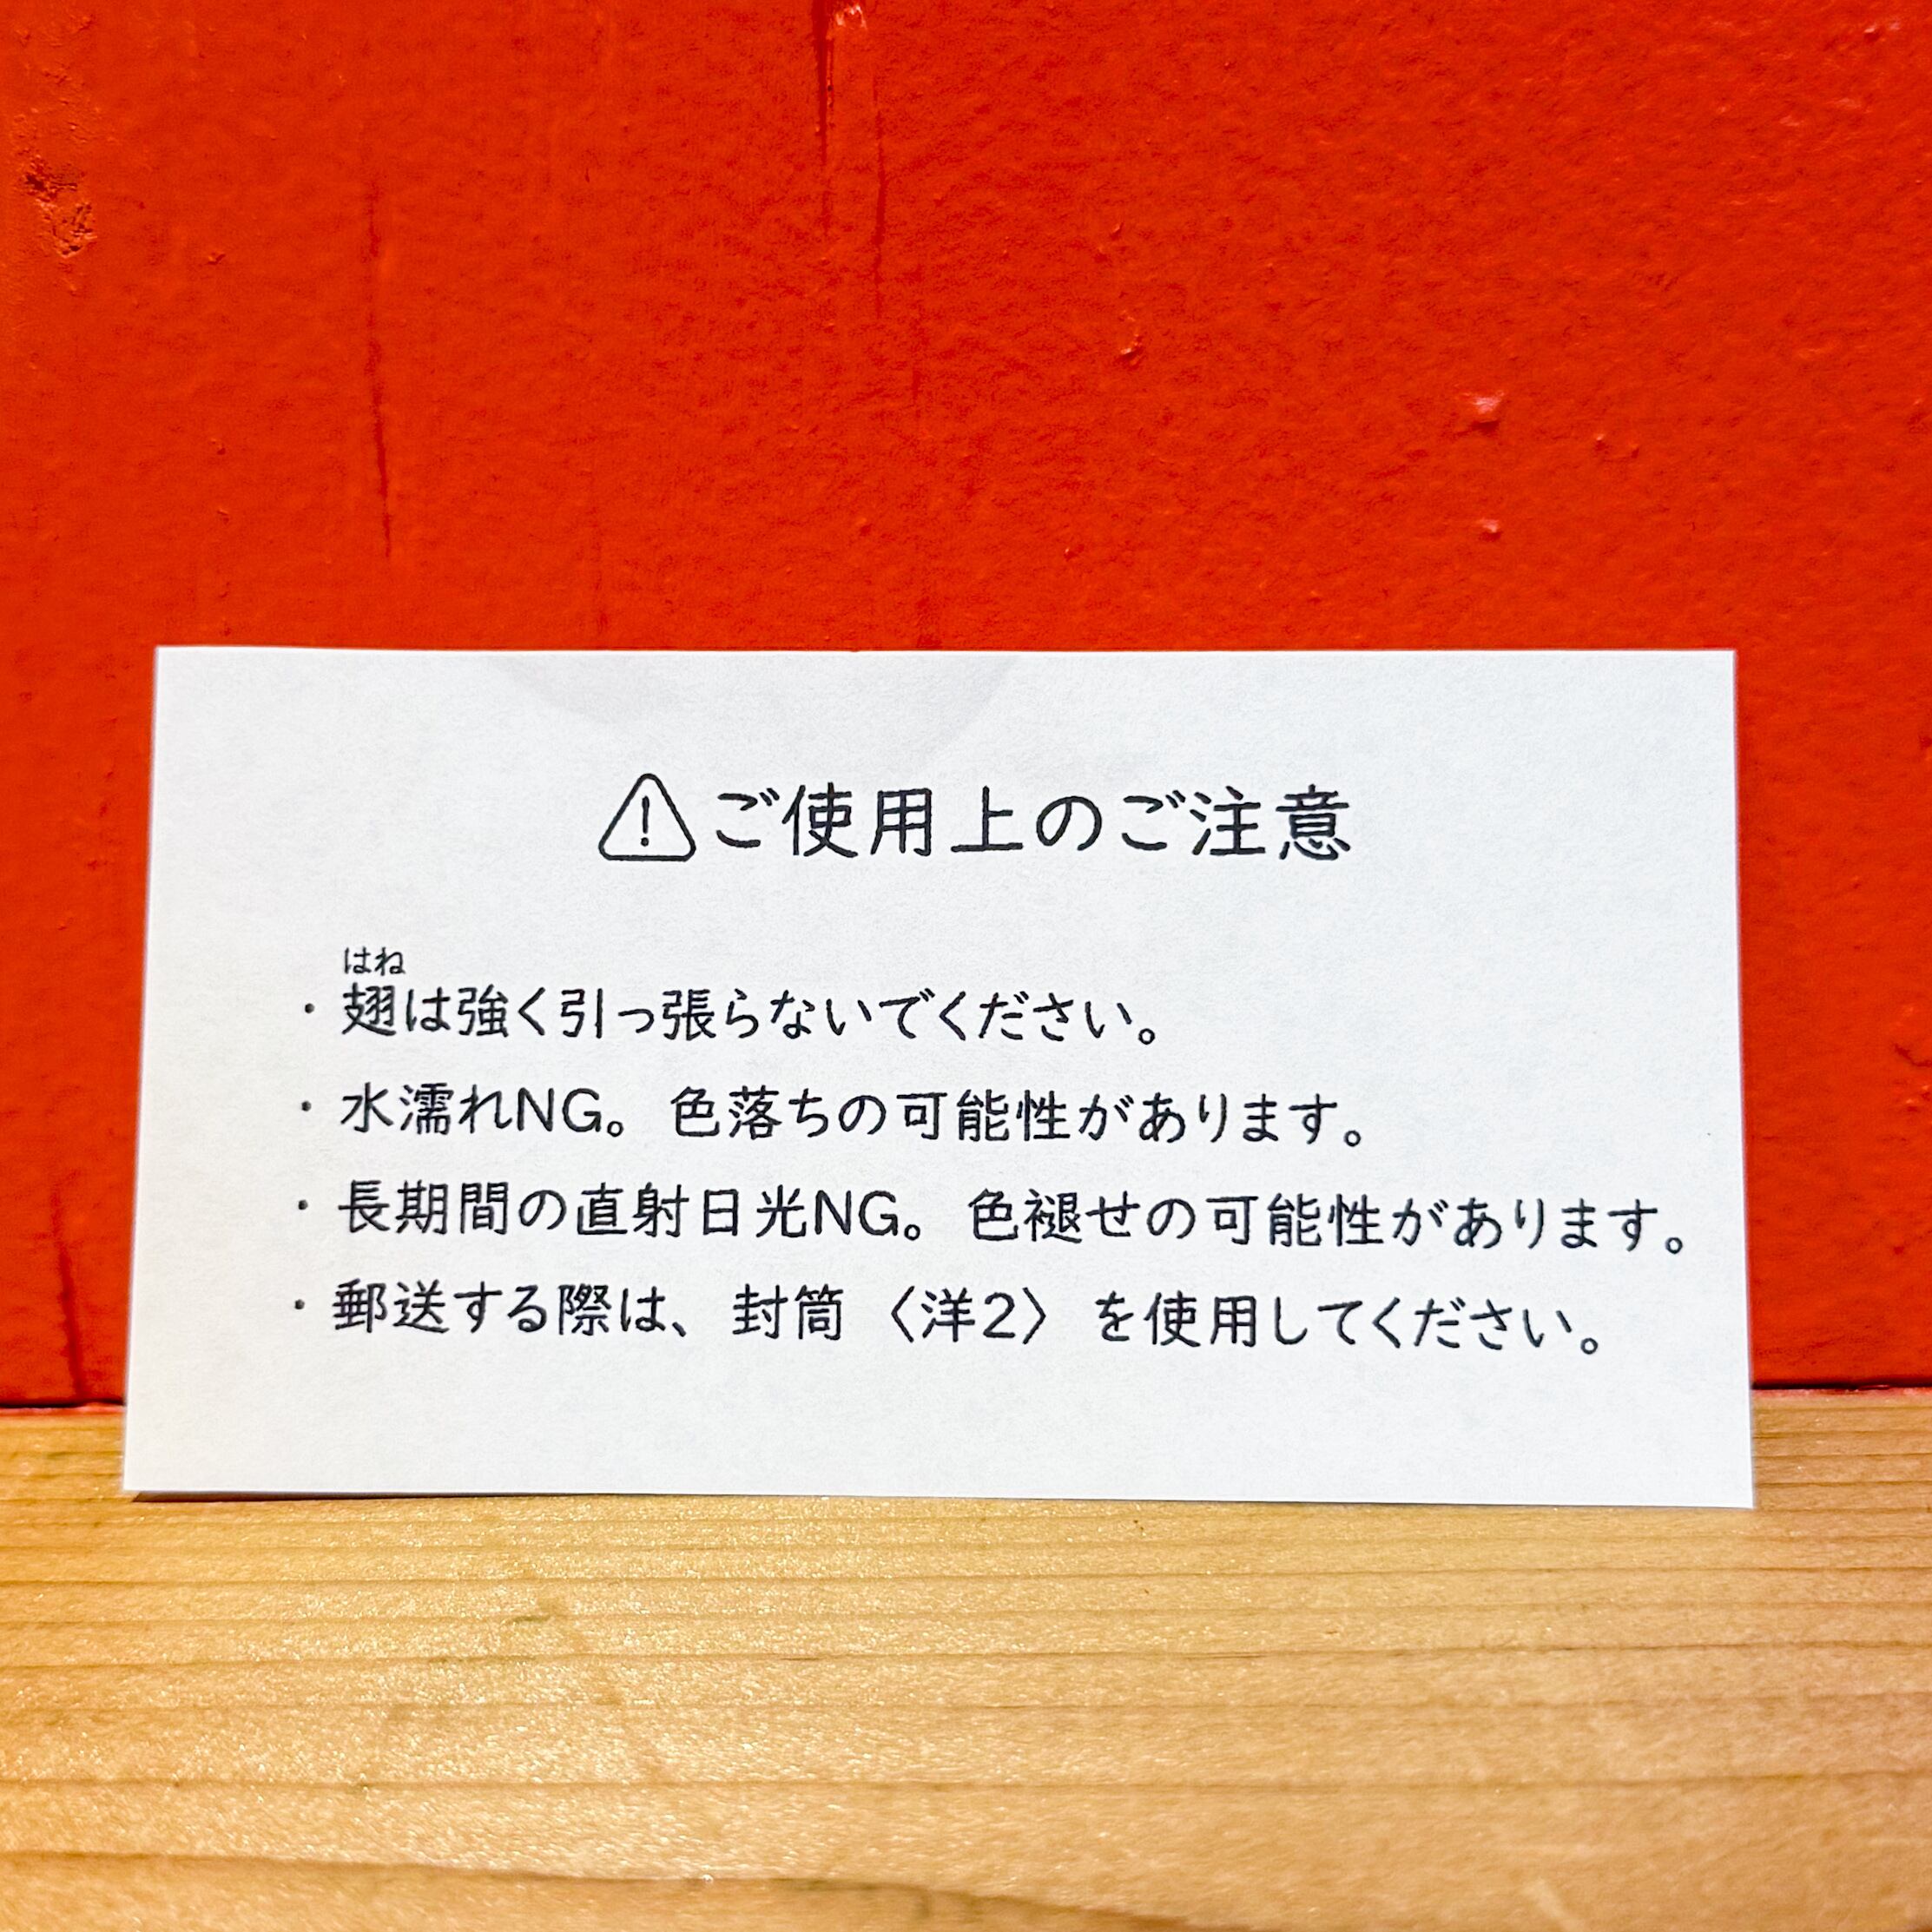 ⚠ご使用上のご注意
はね
・翅は強く引っ張らないでください。
・水濡れNG。色落ちの可能性があります。
・長期間の直射日光NG。色褪せの可能性があります。
・郵送する際は、封筒〈洋2〉を使用してください。